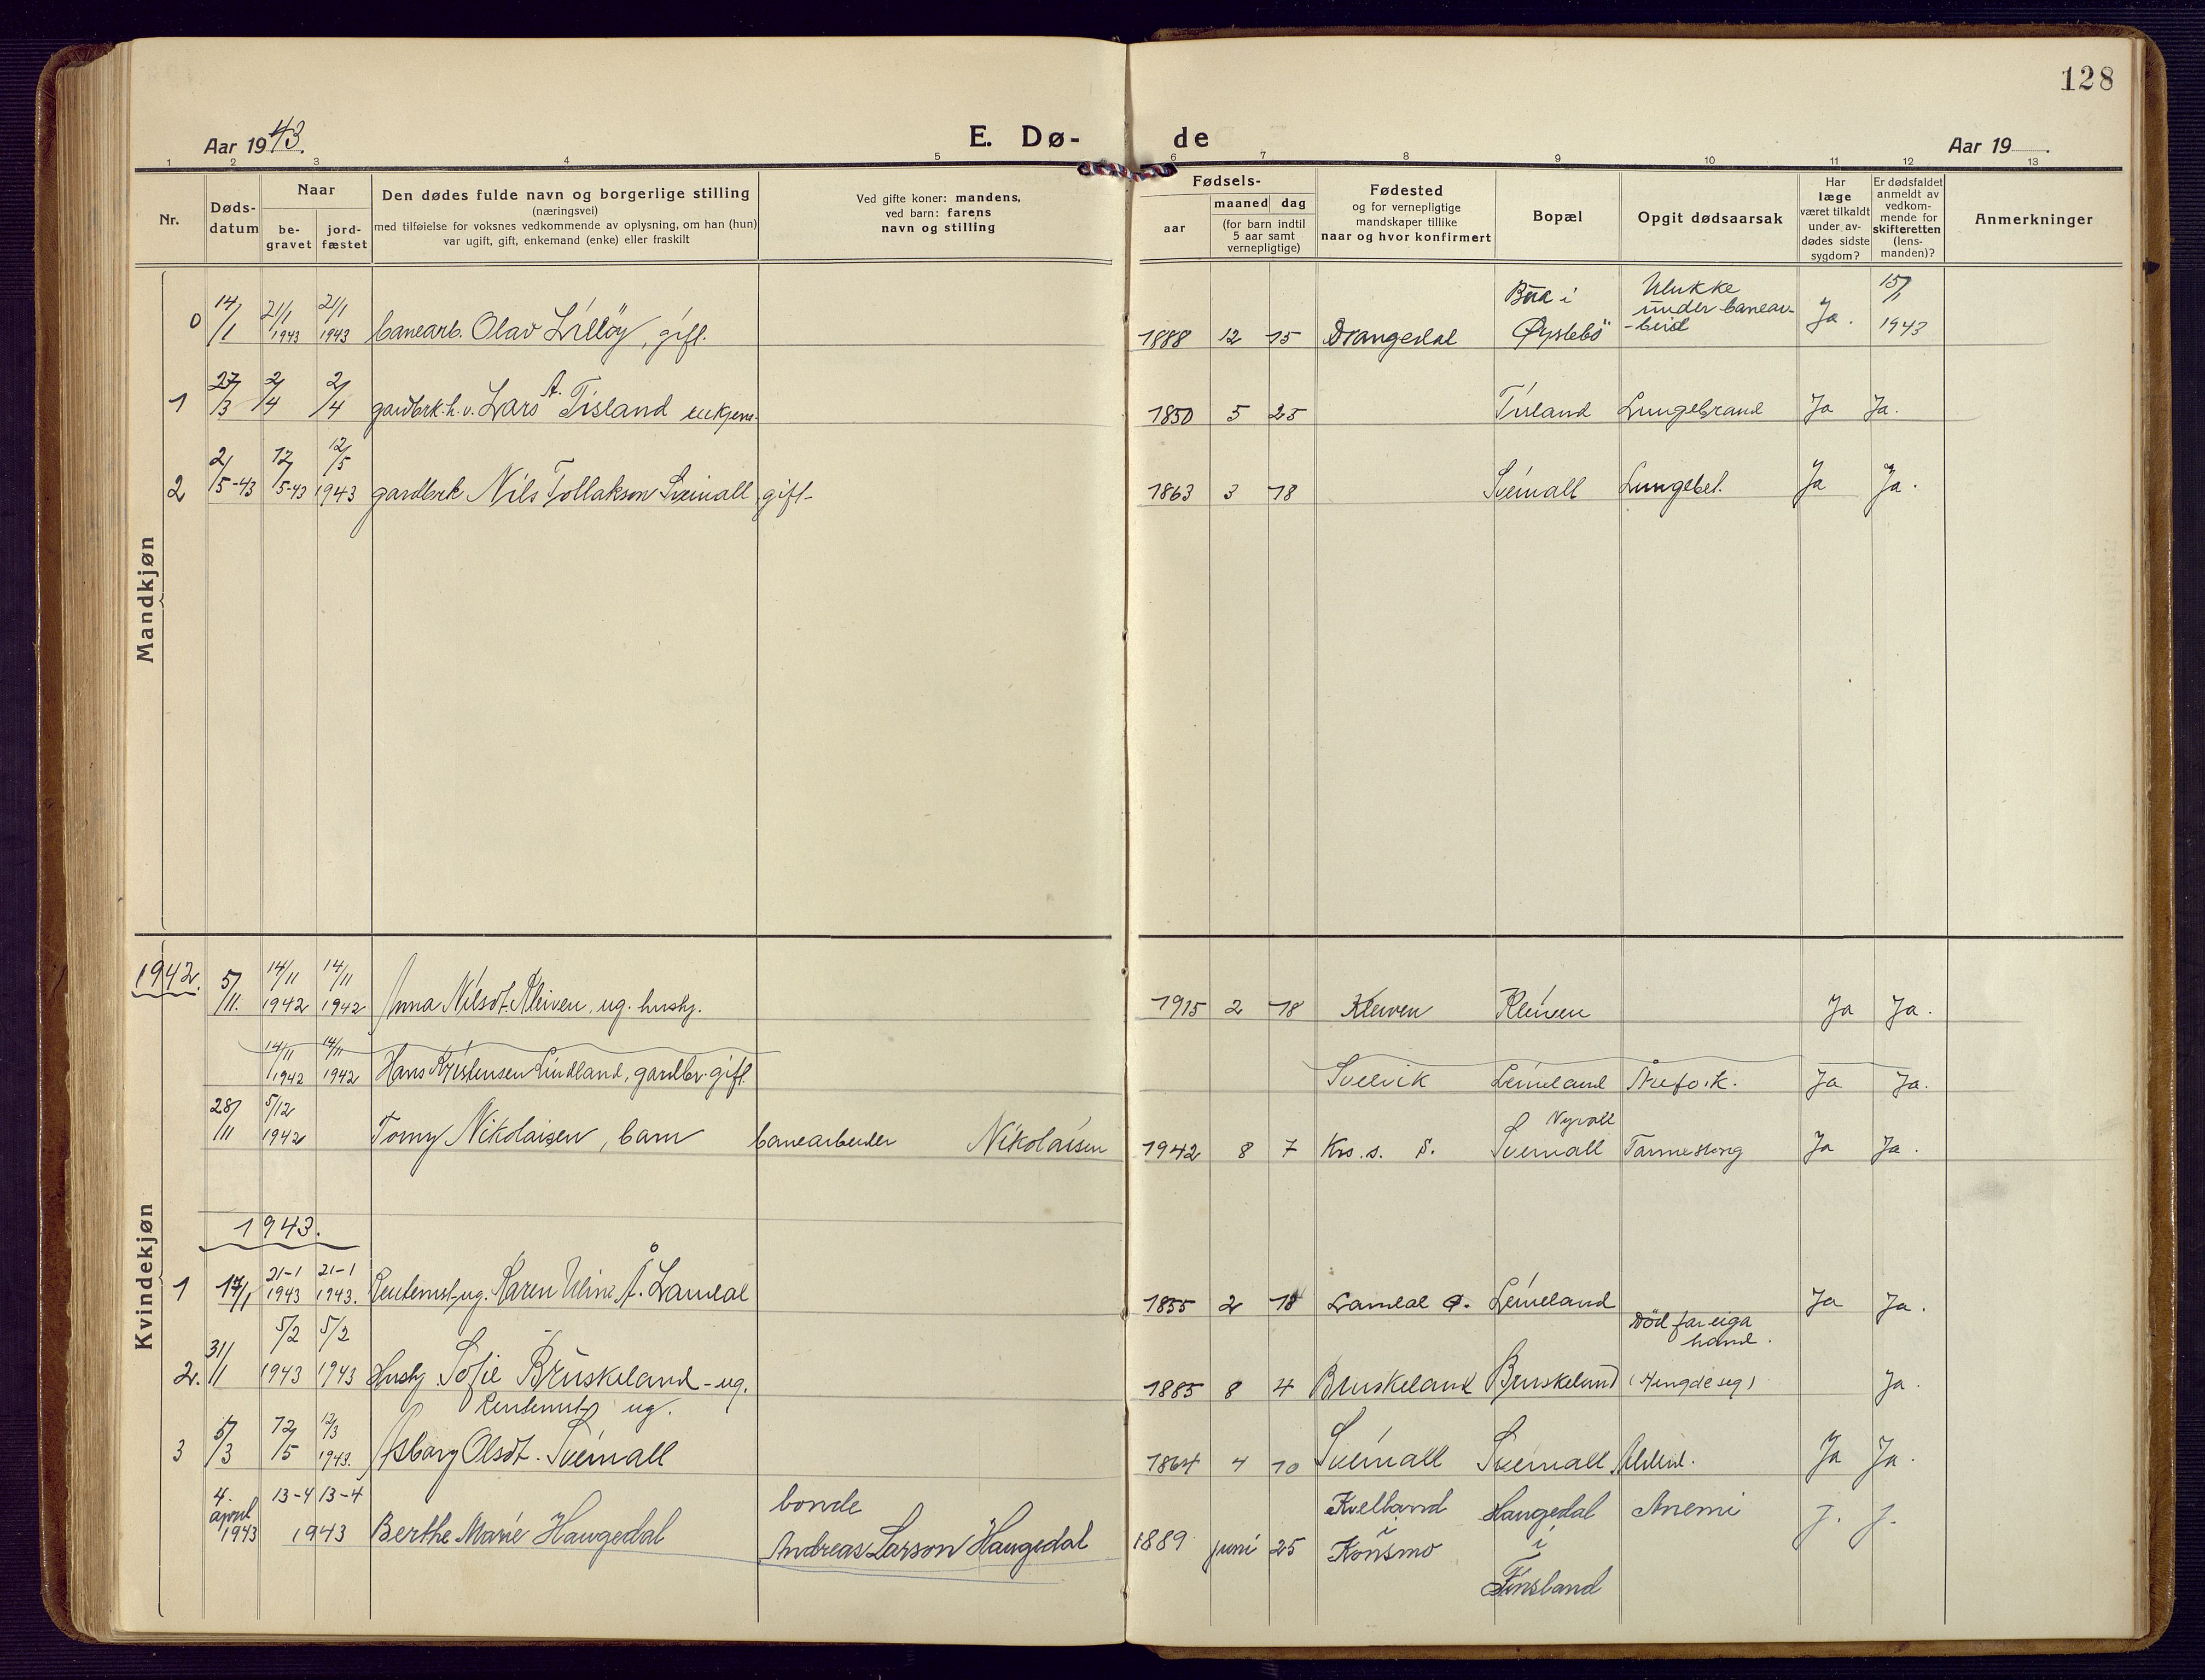 128
Aar 1943.
E. Dø- de
Aar 19   .
1 2 3 4 5 6 7 8 9 10 11 12 13
Nr.
Døds-
datum
Naar
be-
gravet
jord-
fæstet
Den dødes fulde navn og borgerlige stilling
(næringsvei)
med tilføielse for voksnes vedkommende av oplysning, om han (hun)
var ugift, gift, enkemand (enke) eller fraskilt
Ved gifte koner: mandens,
ved barn: farens
navn og stilling
Fødsels-
aar
maaned dag
(for barn indtil
5 aar samt
vernepligtige)
Fødested
og for vernepligtige
mandskaper tillike
naar og hvor konfirmert
Bopæl
Opgit dødsaarsak
Har
læge
været tilkaldt
under av-
dødes sidste
sygdom?
Er dødsfaldet
anmeldt av
vedkom-
mende for
skifteretten
(lens-
manden)?
Anmerkninger
Mandkjøn
0 14/1 21/1 1943 21/1 1943 banearb. Olav Lilløy, gift. 1888 12 15 Drangedal Bua i Øyslebö Ulukke under banearbeid Ja. 15/1 1943
1 27/3 2/4 2/4 gardbrk. h. v. Lars A. Tisland enkjem. 1850 5 25 Tisland Lungebrand Ja Ja.
2 2/5-43 12/5-43 12/5 1943 gardbrk Nils Tollakson Sveinall gift- 1863 3 18 Sveinall Lungebet. Ja Ja.
Kvindekjøn
1942.
5/11. 14/11 1942 14/11 1942 Anna Nilsdt. Kleiven, ug. hushj. 1915 2 18 Kleiven Kleiven Ja Ja.
14/11 1942 14/11 1942 Hans Kristensen Lindland, gardbr. gift. Leineland Ja Ja.
28/11 5/12 1942 Tomy Nikolaisen, barn banearbeider Nikolaisen 1942 8 7 Krs. s. S. Nyvoll Sveinall Tarmeslyng Ja Ja.
1943.
1 17/1 21-1 1943 21-1 1943. Rentenist, ug. Karen Uline Å. Lamdal 1855 2 18 Lamdal Ø. Leineland Ja Ja.
2. 31/1 5/2 1943 5/2 1943 Hushj. Sofie Brüskeland - ug. 1885 8 4 Bruskeland Bruskeland Död for eiga hand. (Hengde seg) Ja.
Rentenist, ug.
3 5/3 12/5 12/3 1943. Asborg Olsdt. Sveinall 1864 4 10 Sveinall Sveinall Alderd. Ja Ja.
4. april 1943 13-4 13-4 1943 Berthe Marie Haugedal bonde Andreas Larson Haugedal 1889 juni 25 Kvelland Konsmo Haugedal i Finsland Anemi J. J.